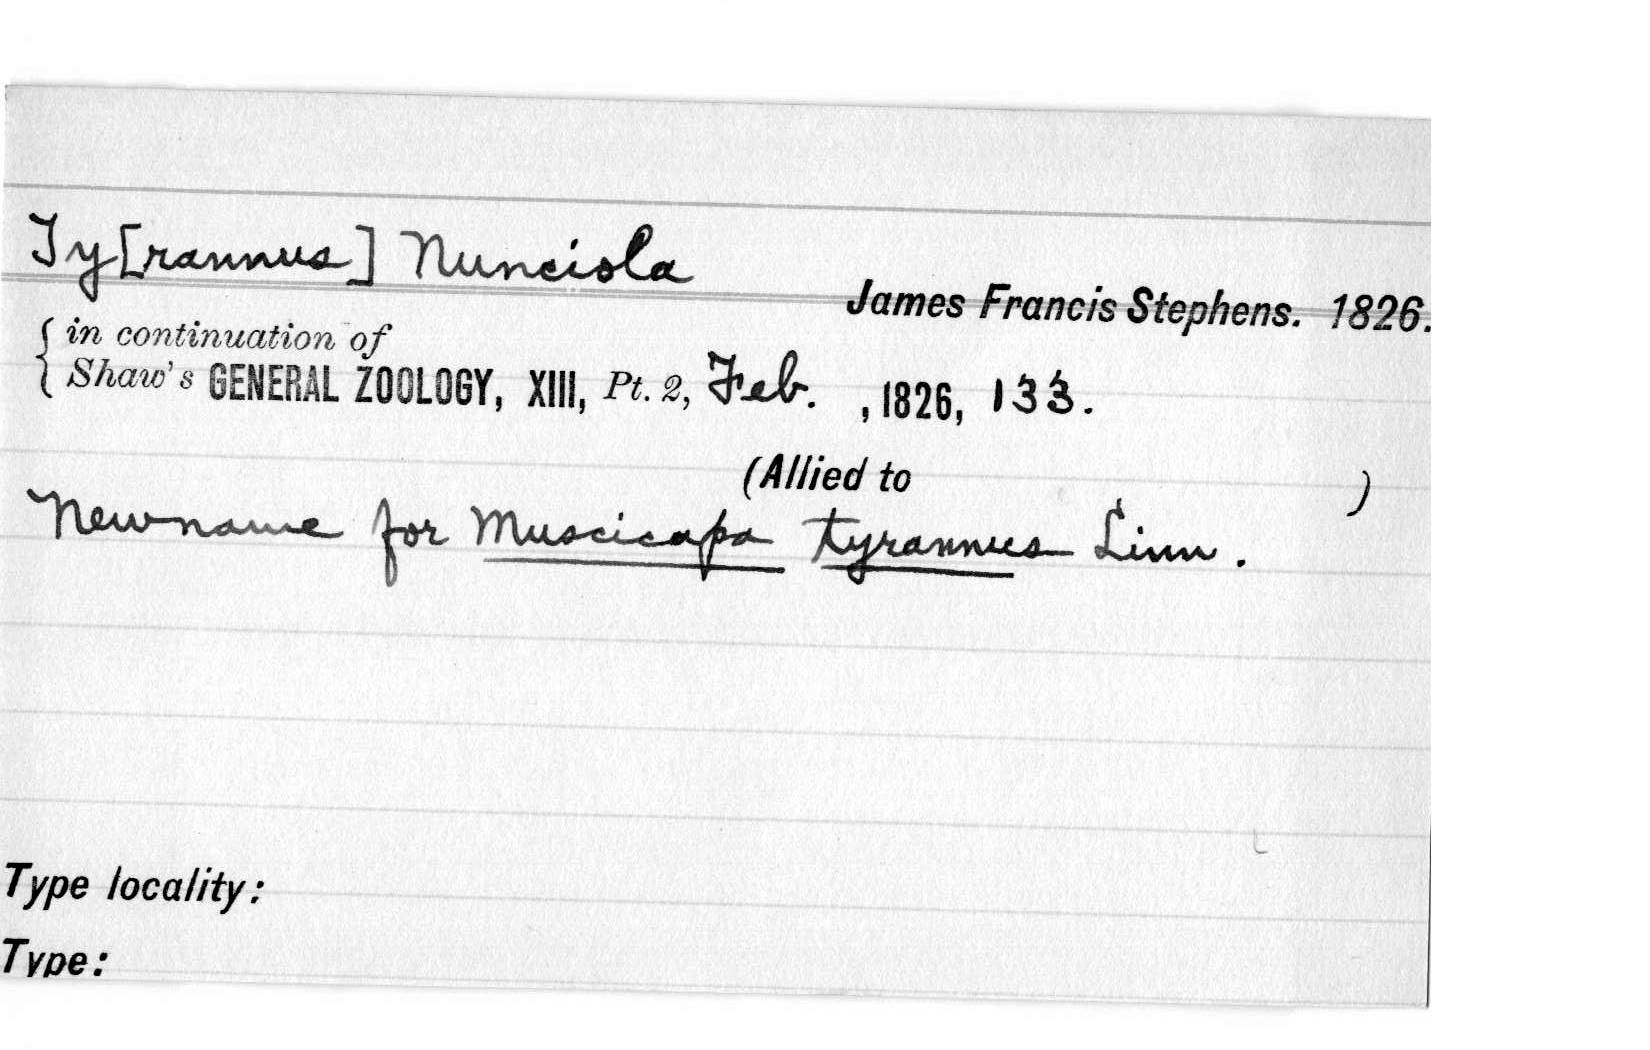 Ty[rannus] Nunciola
James Francis Stephens. 1826.
{ in continuation of
Shaw's GENERAL ZOOLOGY, XIII, Pt. 2, Feb. , 1826, 133.
(Allied to )
New name for Muscicapa tyrannus Linn.
Type locality:
Type: